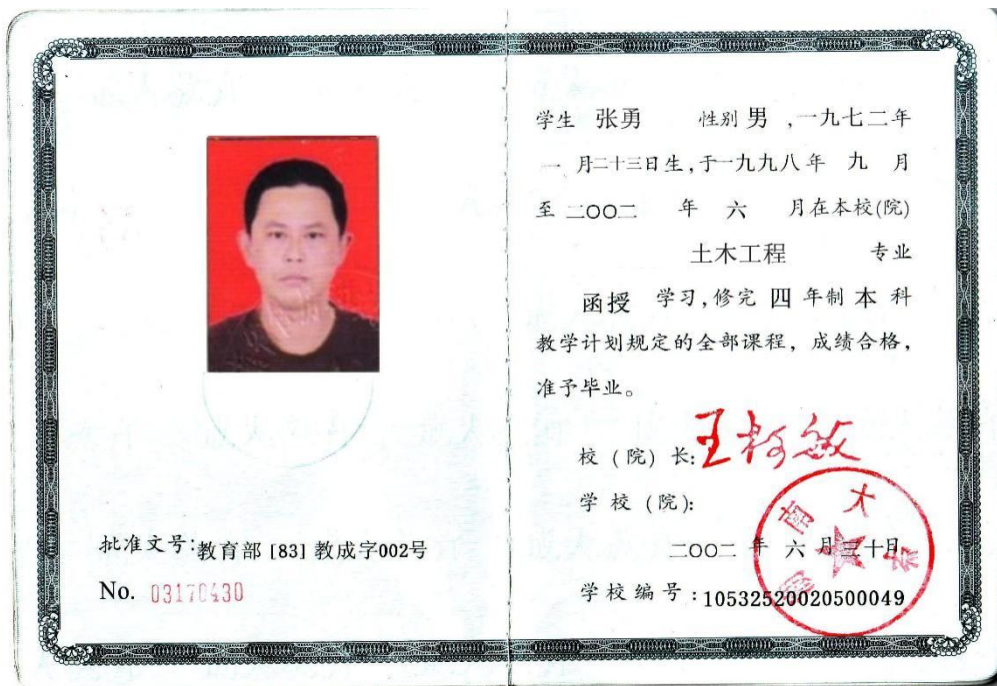 批准文号:教育部 [83] 教成字002号
No. 03170430
学生 张勇 性别 男 ,一九七二年
一 月二十三日生,于一九九八年 九 月
至 二〇〇二 年 六 月在本校(院)
土木工程 专业
函授 学习,修完 四 年制 本 科
教学计划规定的全部课程, 成绩合格,
准予毕业。
校 (院) 长: 王柯敏
学 校 (院):
湖南大学
二〇〇二 年 六 月三十月
学校编号:10532520020500049